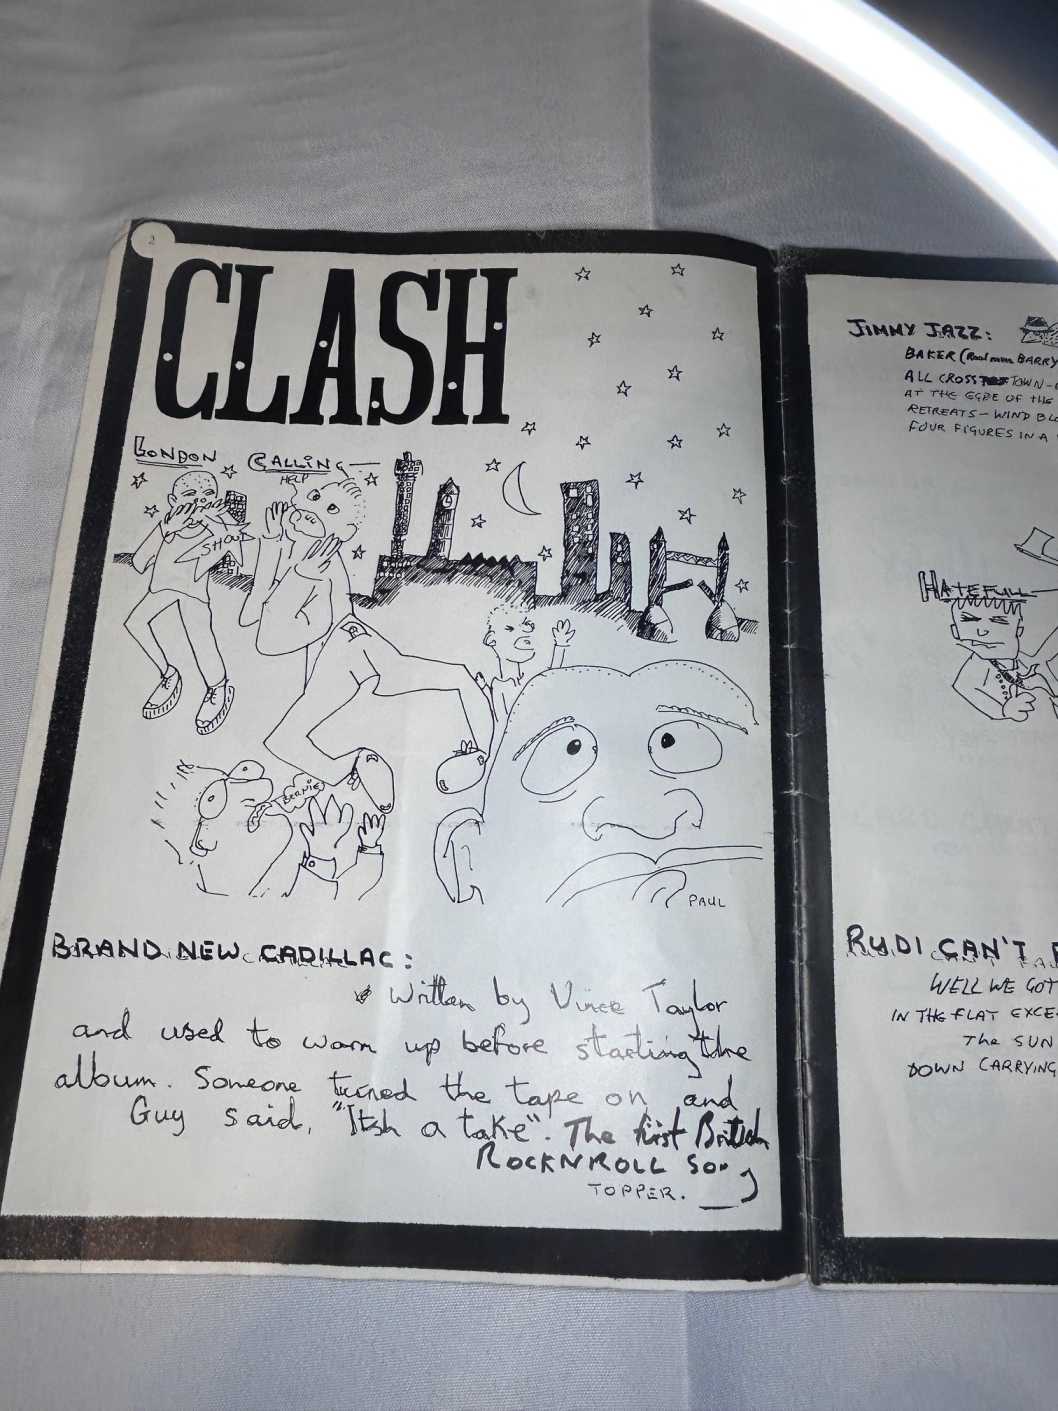 2
CLASH
LONDON CALLING
HELP
SHOUT
BERNIE
PAUL
BRAND NEW CADILLAC:
Written by Vince Taylor
and used to warm up before starting the
album. Someone turned the tape on and
Guy said, "Itsh a take". The first British
ROCKNROLL SONG
TOPPER.
JIMMY JAZZ:
BAKER (Real name BARRY
ALL CROSS TOWN-
AT THE EGDE OF THE
RETREATS - WIND BL
FOUR FIGURES IN A
HATEFULL
RUDI CAN'T F
WELL WE GOT
IN THE FLAT EXCE
THE SUN
DOWN CARRYING